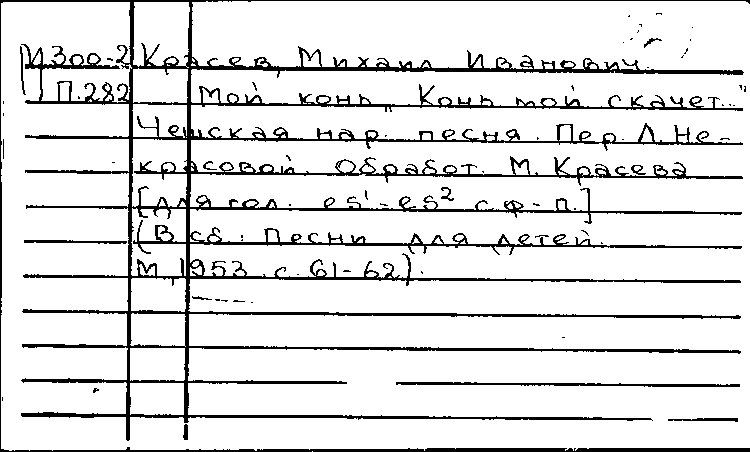 М300-2 Красев, Михаил Иванович.
П.282 Мой конь „Конь мой скачет..."
Чешская нар. песня. Пер. Л. Не-
красовой. Обработ. М. Красева
[Для гол. es¹-es² с ф-п.]
(В сб.: Песни для детей.
М., 1953. с. 61-62).